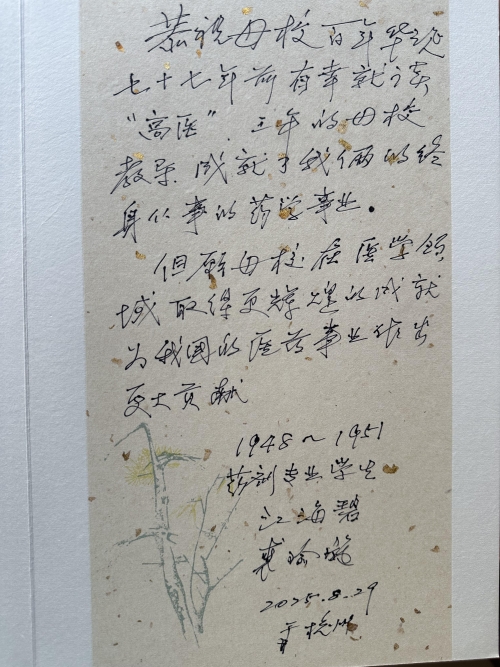 恭祝母校百年华诞
七十七年前有幸就读
“高医”．三年的母校
教导 成就了我俩的终
身从事的药学事业。
但愿母校在医学领
域取得更辉煌的成就
为我国的医药事业作出
更大贡献
1948～1951
药剂专业学生
江海碧
2025.8.29
于杭州